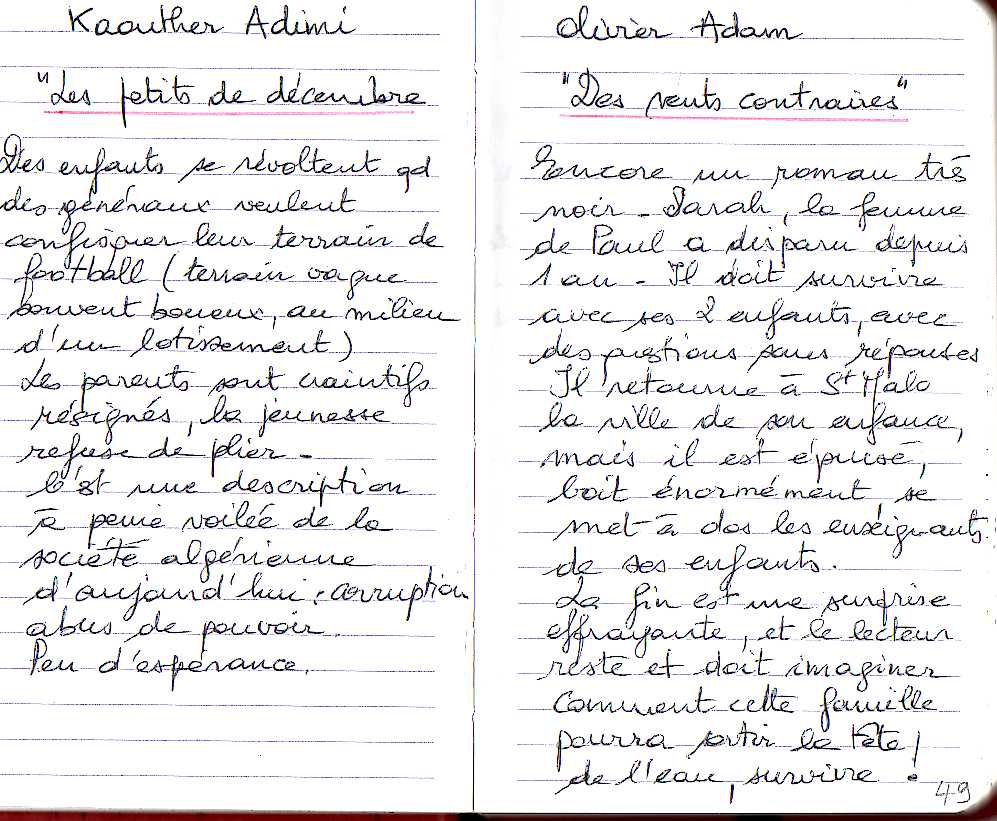 Kaouther Adimi
"Les petits de décembre
Des enfants se révoltent qd
des généraux veulent
confisquer leur terrain de
football (terrain vague
souvent boueux, au milieu
d'un lotissement)
Les parents sont craintifs
résignés, la jeunesse
refuse de plier -
C'est une description
à peine voilée de la
société algérienne
d'aujourd'hui : corruption
abus de pouvoir.
Peu d'espérance.
Olivier Adam
"Des vents contraires"
Encore un roman très
noir - Sarah, la femme
de Paul a disparu depuis
1 an - Il doit survivre
avec ses 2 enfants, avec
des questions sans réponses
Il retourne à St Malo
la ville de son enfance,
mais il est épuisé,
boit énormément, se
met à dos les enseignants
de ses enfants.
La fin est une surprise
effrayante, et le lecteur
reste et doit imaginer
comment cette famille
pourra sortir la tête
de l'eau, survivre !
49